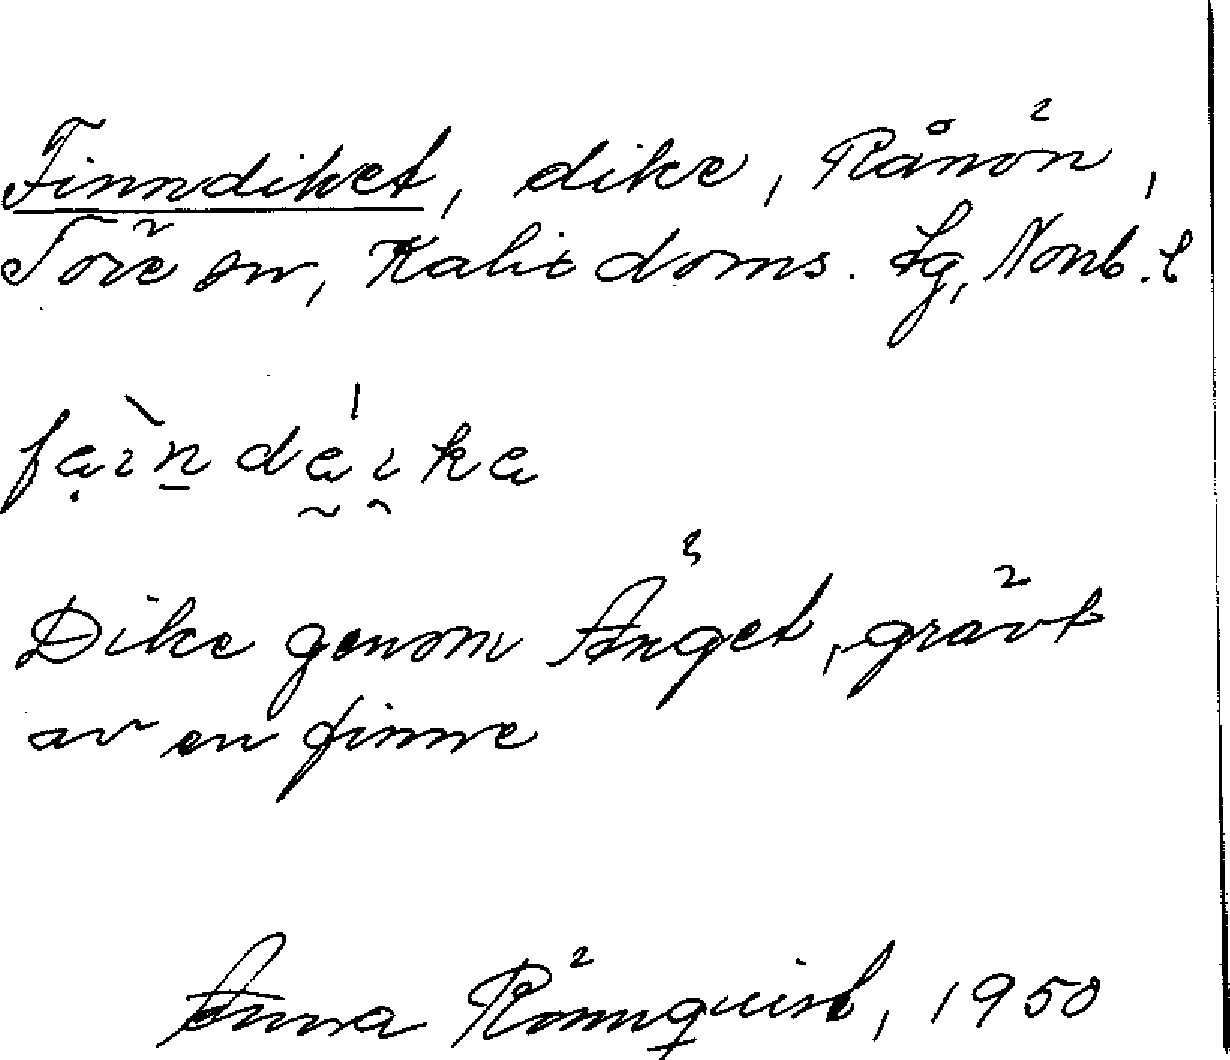 Finndiket, dike, Rånön,
Töre sn, Kalix doms. lg, Norrb. l
fa̤ìn̠dá̰i̯ka
Dike genom Änget, grävt
av en finne
Anna Rönnquist, 1950